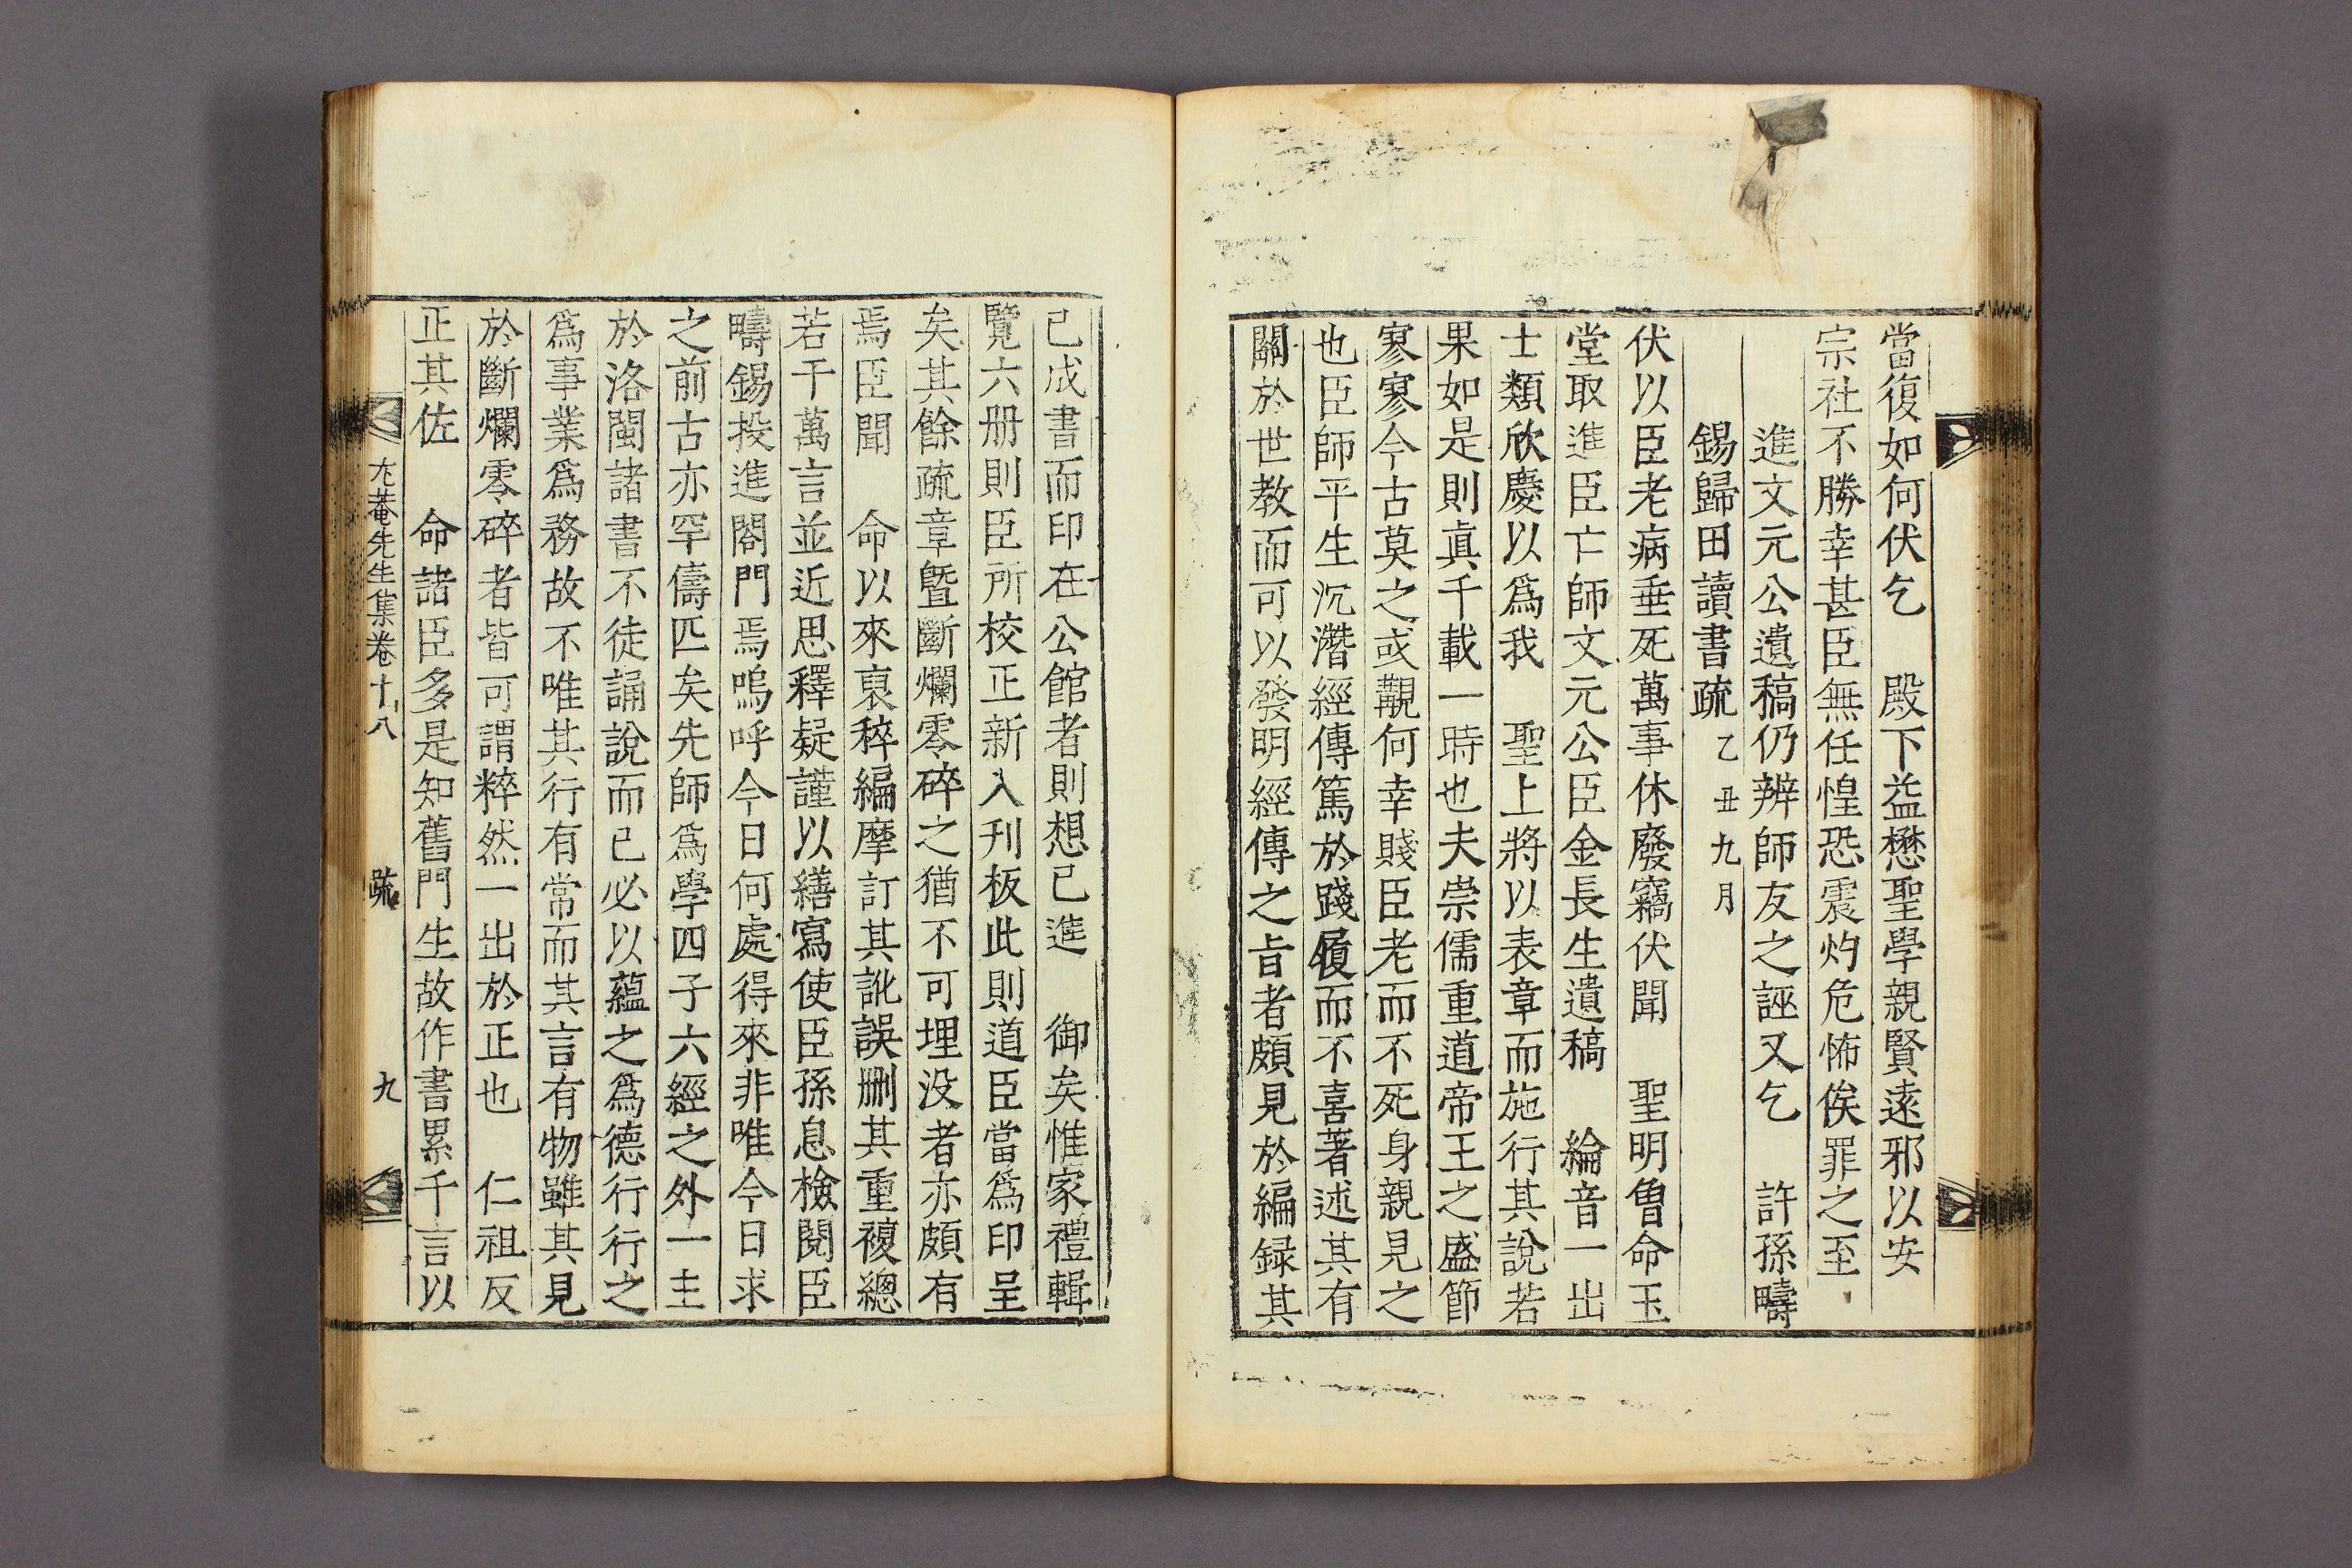 當復如何伏乞　殿下益懋聖學親賢遠邪以安
宗社不勝幸甚臣無任惶恐震灼危怖俟罪之至
進文元公遺稿仍辨師友之誣又乞　許孫疇
錫歸田讀書疏 乙丑九月
伏以臣老病垂死萬事休廢竊伏聞　聖明曾命玉
堂取進臣亡師文元公臣金長生遺稿　綸音一出
士類欣慶以爲我　聖上將以表章而施行其說若
果如是則眞千載一時也夫崇儒重道帝王之盛節
寥寥今古莫之或覯何幸賤臣老而不死身親見之
也臣師平生沉潛經傳篤於踐履而不喜著述其有
關於世教而可以發明經傳之旨者頗見於編録其
已成書而印在公館者則想已進　御矣惟家禮輯
覽六册則臣所校正新入刊板此則道臣當爲印呈
矣其餘疏章曁斷爛零碎之猶不可埋没者亦頗有
焉臣聞　命以來裒稡編摩訂其訛誤删其重複總
若干萬言並近思釋疑謹以繕寫使臣孫息檢閱臣
疇錫投進閤門焉嗚呼今日何處得來非唯今日求
之前古亦罕儔匹矣先師爲學四子六經之外一主
於洛閩諸書不徒誦說而已必以蘊之爲德行行之
爲事業爲務故不唯其行有常而其言有物雖其見
於斷爛零碎者皆可謂粹然一出於正也　仁祖反
正其佐　命諸臣多是知舊門生故作書累千言以
尤菴先生集卷十八　疏　九